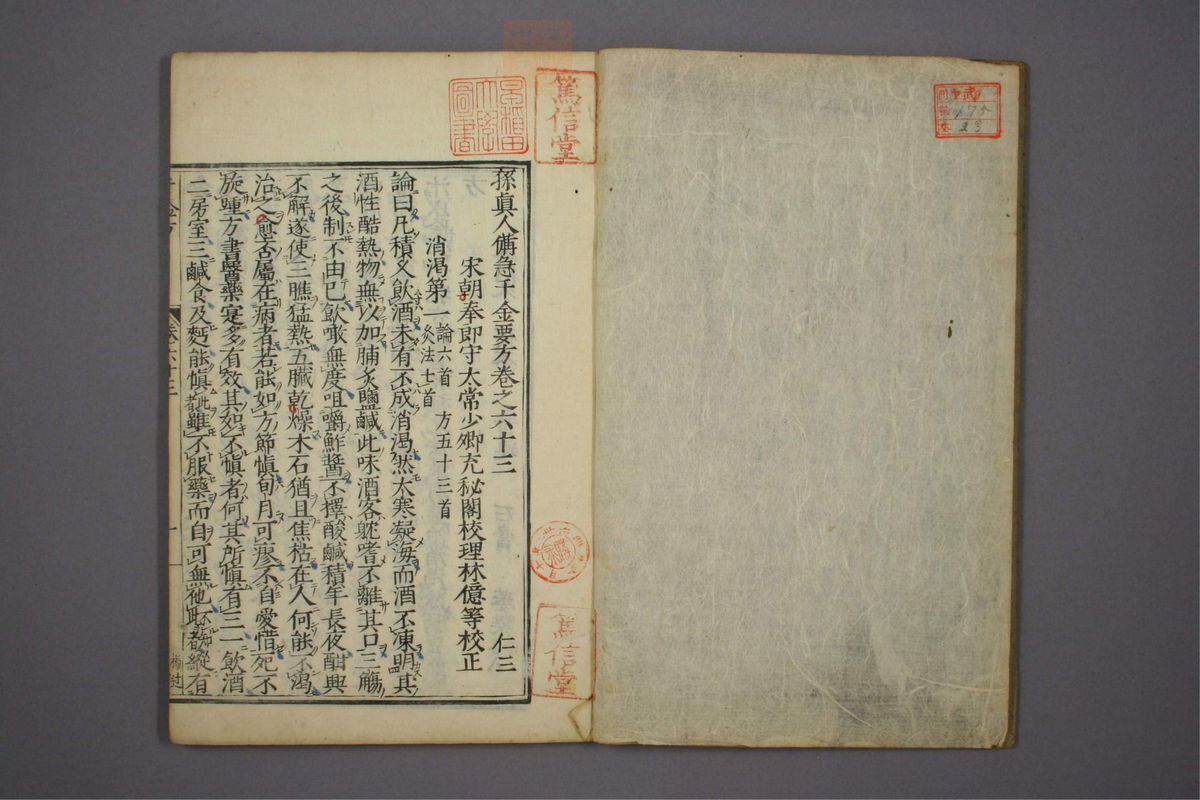 孫眞人備急千金要方卷之六十三
仁三
宋朝奉郎守太常少卿充秘閣校理林億等校正
消渴第一
論六首　方五十三首
灸法七首
論曰凡積久飲酒未有不成消渴然大寒凝海而酒不凍明其
酒性酷熱物無以加脯炙鹽鹹此味酒客躭嗜不離其口三觴
之後制不由己飲噉無度咀嚼鮓醬不擇酸鹹積年長夜酣興
不解遂使三膲猛熱五臟乾燥木石猶且焦枯在人何能不渴
治之愈否屬在病者若能如方節愼旬月可瘳不自愛惜死不
旋踵方書醫藥寔多有效其如不愼者何其所愼有三一飲酒
二房室三鹹食及麪能愼此者雖不服藥而自可無他不知此者縱有
篤信堂
篤信堂
卷六十三